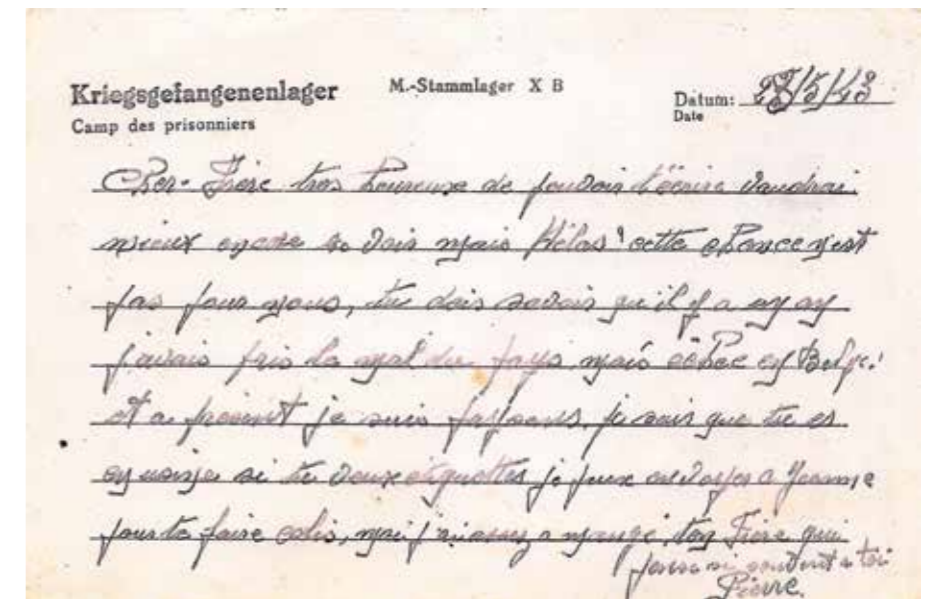 Kriegsgefangenenlager
Camp des prisonniers
M.-Stammlager X B
Datum: 23/5/43
Date
Cher Frère tres heureuse de pouvoir t'écrire vaudrai
mieux encore se voir mais Hélas! cette chance n'est
pas pour nous, tu dois savoir qu'il y a un an
j'avais pris le mal du pays mais échec en Belge!
et a présent je suis paysans, je sais que tu es
en usine si tu veux etiquettes je peux envoyer a Jeanne
pour te faire colis, moi j'ai assez a mangé, ton Frère qui
pense souvent a toi
Pierre.